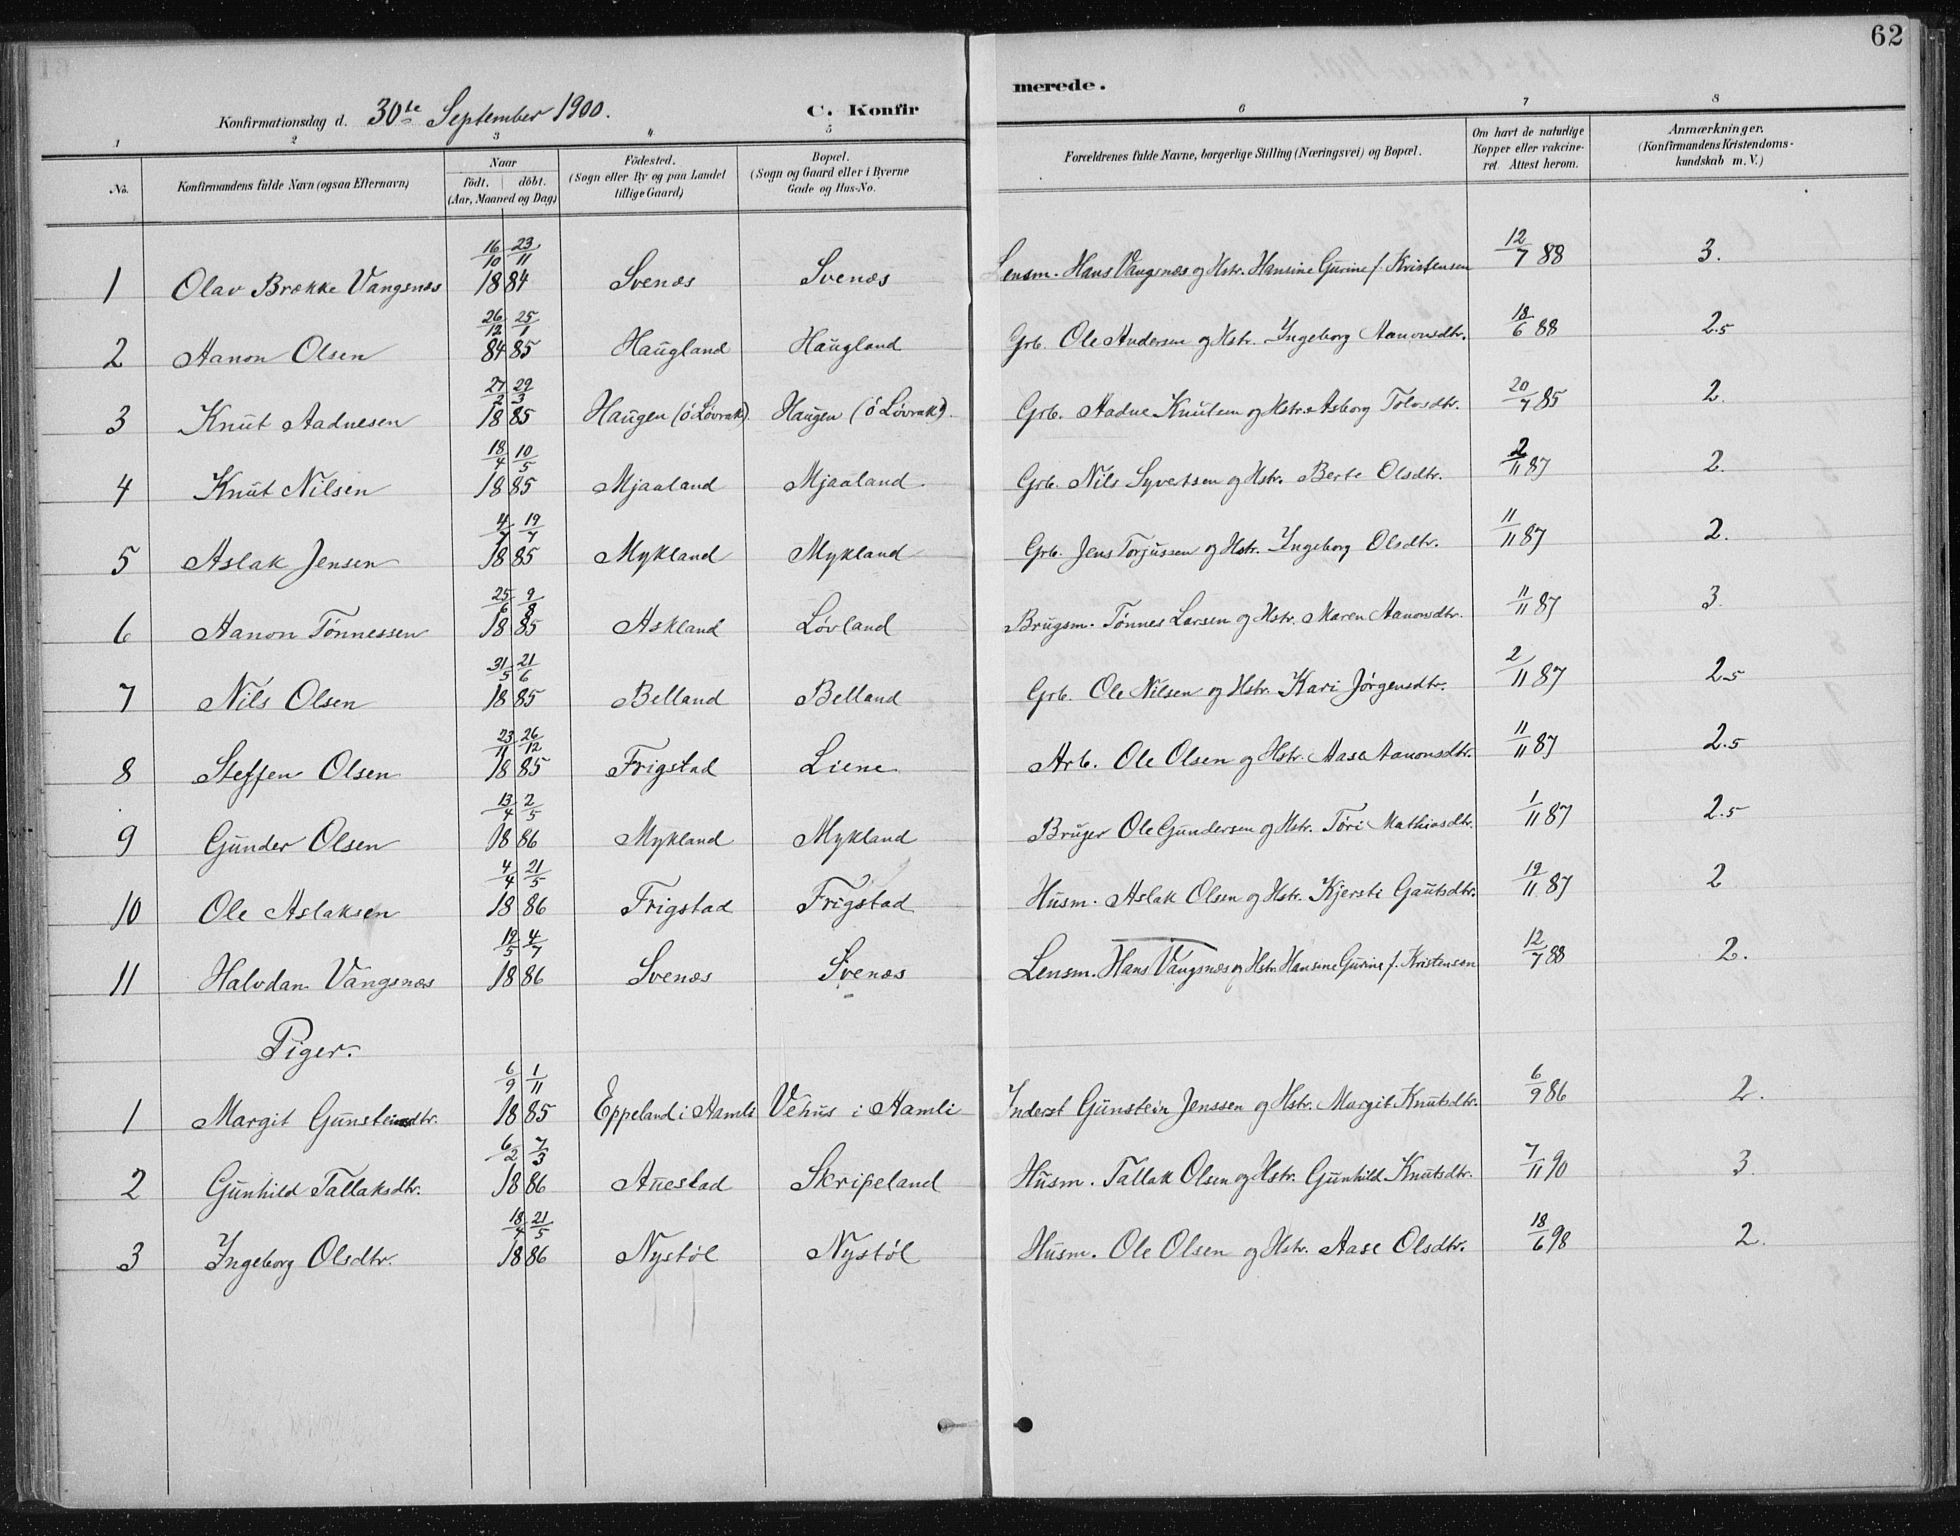 62
Konfirmationsdag d. 30te September 1900. C. Konfirmerede.
1 2 3 4 5 6 7 8
No. Konfirmandens fulde Navn (ogsaa Efternavn) Naar födt. döbt. (Aar, Maaned og Dag) Födested. (Sogn eller By og paa Landet tillige Gaard) Bopæl. (Sogn og Gaard eller i Byerne Gade og Hus-No. Forældrenes fulde Navne, borgerlige Stilling (Næringsvei) og Bopæl. Om havt de naturlige Kopper eller vakcineret. Attest herom. Anmærkninger. (Konfirmandens Kristendomskundskab m. V.)
1 Olav Brække Vangsnæs 16/10 23/11 1884 Svenæs Svenæs Lensm. Hans Vangsnæs og Hstr. Hansine Gurine f. Kristensen 12/7 88 3.
2 Aanon Olsen 26/12 25/1 84 85 Haugland Haugland Grb. Ole Andersen og Hstr. Ingeborg Aanonsdtr. 18/6 88 2.5
3 Knut Aadnesen 27/2 29/3 1885 Haugen (ö Lövrak) Haugen (ö Lövrak). Grb. Aadne Knutsen og Hstr. Asborg Tolvsdtr. 20/7 85 2.
4 Knut Nilsen 18/4 10/5 1885 Mjaaland Mjaaland. Grb. Nils Syvertsen og Hstr. Berte Olsdtr. 2/11 87 2.
5 Aslak Jensen 4/7 19/7 1885 Mykland Mykland Grb. Jens Torjussen og Hstr. Ingeborg Olsdtr. 11/11 87 2.
6 Aanon Tönnessen 25/6 9/8 1885 Askland Lövland Brugsm. Tönnes Larsen og Hstr. Maren Aanonsdtr. 11/11 87 3.
7 Nils Olsen 31/5 21/6 1885 Belland Belland Grb. Ole Nilsen og Hstr. Kari Jörgensdtr. 2/11 87 2.5
8 Steffen Olsen 23/11 26/12 1885 Frigstad Liene Arb. Ole Olsen og Hstr. Aase Aanonsdtr. 11/11 87 2.5
9 Gunder Olsen 13/4 2/5 1886 Mykland Mykland Bruger Ole Gundersen og Hstr. Töri Mathiasdtr. 1/11 87 2.5
10 Ole Aslaksen 4/4 21/5 1886 Frigstad Frigstad Husm. Aslak Olsen og Hstr. Kjersti Gautsdtr. 19/11 87 2
11 Halvdan Vangsnæs 19/5 4/7 1886 Svenæs Svenæs Lensm. Hans Vangsnæs og Hstr. Hansine Gurine f. Kristensen 12/7 88 2.
Piger.
1 Margit Gunsteinsdtr. 6/9 1/11 1885 Eppeland i Aamli Vehus i Aamli Inderst Gunstein Jenssen og Hstr. Margit Knutsdtr. 6/9 86 2.
2 Gunhild Tallaksdtr. 6/2 7/3 1886 Auestad Skripeland Husm. Tallak Olsen og Hstr. Gunhild Knutsdtr. 7/11 90 3.
3 Ingeborg Olsdtr. 18/4 21/5 1886 Nystöl Nystöl Husm. Ole Olsen og Hstr. Aase Olsdtr. 18/6 98 2.